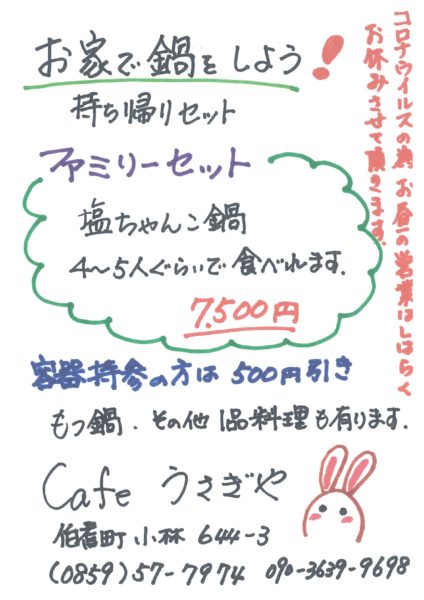 お家で鍋をしよう！
持ち帰りセット
ファミリーセット
塩ちゃんこ鍋
4〜5人ぐらいで食べれます.
7,500円
容器持参の方は500円引き
もつ鍋.その他1品料理も有ります.
Cafe うさぎや
伯耆町小林644-3
(0859)57-7974 090-3639-9698
コロナウイルスの為お昼の営業はしばらく
お休みさせて頂きます.